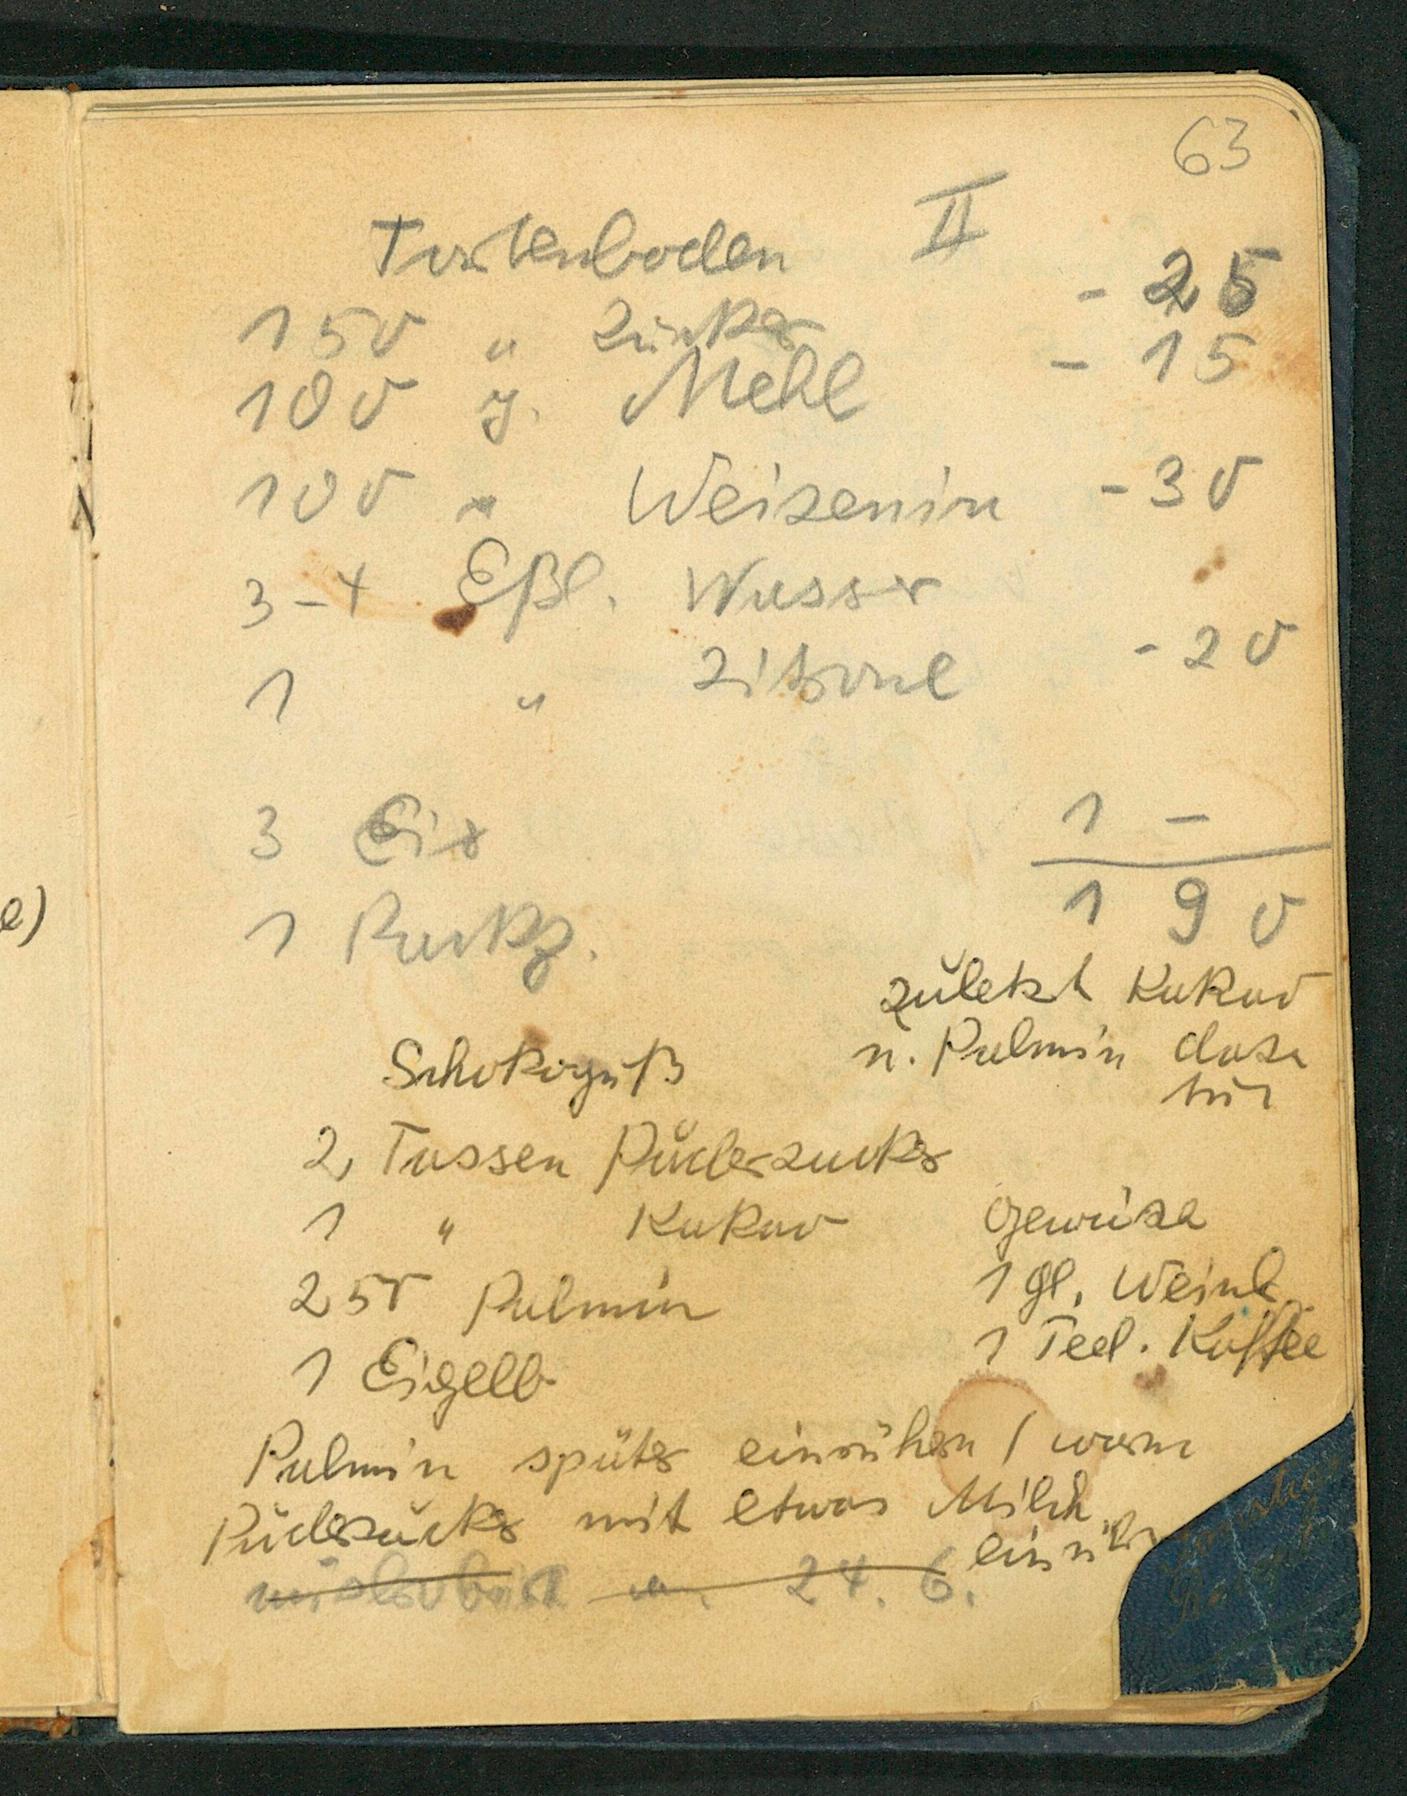 63
Tortenboden II
150 " Zucker - 25
100 g. Mehl - 15
100 " Weizenin - 30
3-4 Eßl. Wasser
1 " Zitrone - 20
3 Eier 1 -
1 Backp. 1 90
zuletzt Kakao
u. Palmin dazu
tun
Schokoguß
2 Tassen Puderzucker
1 " Kakao
250 Palmin
1 Eigelb
Gewürze
1 Gl. Weinb.
1 Teel. Kaffee
Palmin später einrühren / warm
Puderzucker mit etwas Milch
einrühr
24. 6.
e)